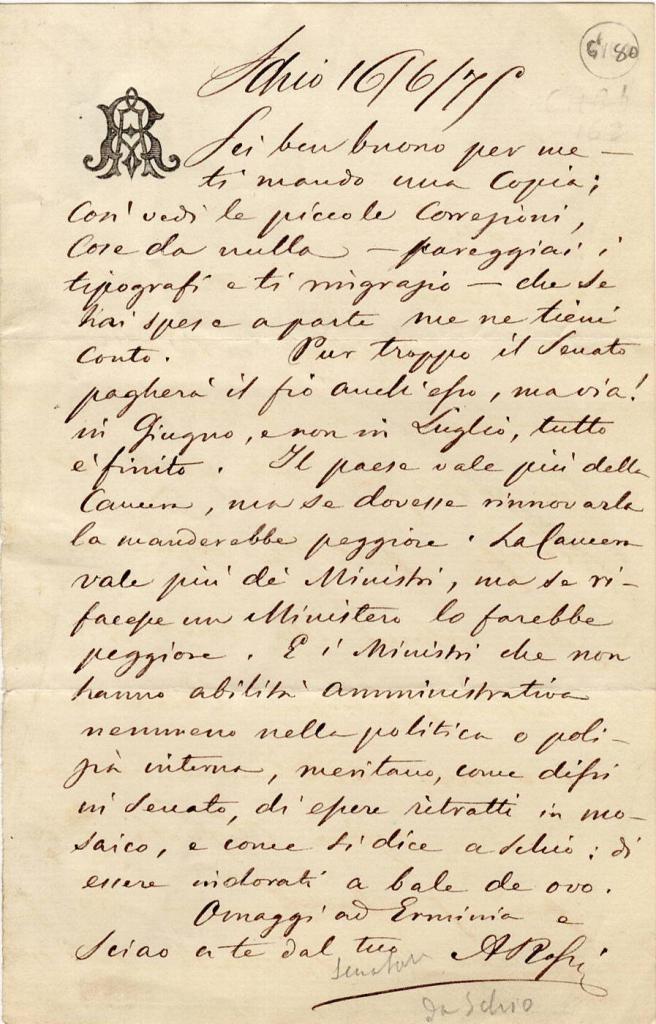 6180
Schio 16/6/75
AR
Sei ben buono per me –
ti mando una Copia;
Così vedi le piccole Correzioni,
Cose da nulla – pareggiai i
tipografi e ti ringrazio – che se
hai spese a parte me ne tieni
Conto. Pur troppo il Senato
pagherà il fio anch'esso, ma via!
in Giugno, e non in Luglio, tutto
è finito. Il paese vale più della
Camera, ma se dovesse rinnovarla
la manderebbe peggiore. La Camera
vale più dei Ministri, ma se ri-
facesse un Ministero lo farebbe
peggiore. E i Ministri che non
hanno abilità amministrativa
nemmeno nella politica o poli-
zia interna, meritano, come dissi
in Senato, di essere ritratti in mo-
saico, e come si dice a Schio: di
essere indorati a bale de ovo.
Omaggi ad Erminia e
Sciao a te dal tuo ARossi
Senatore
da Schio